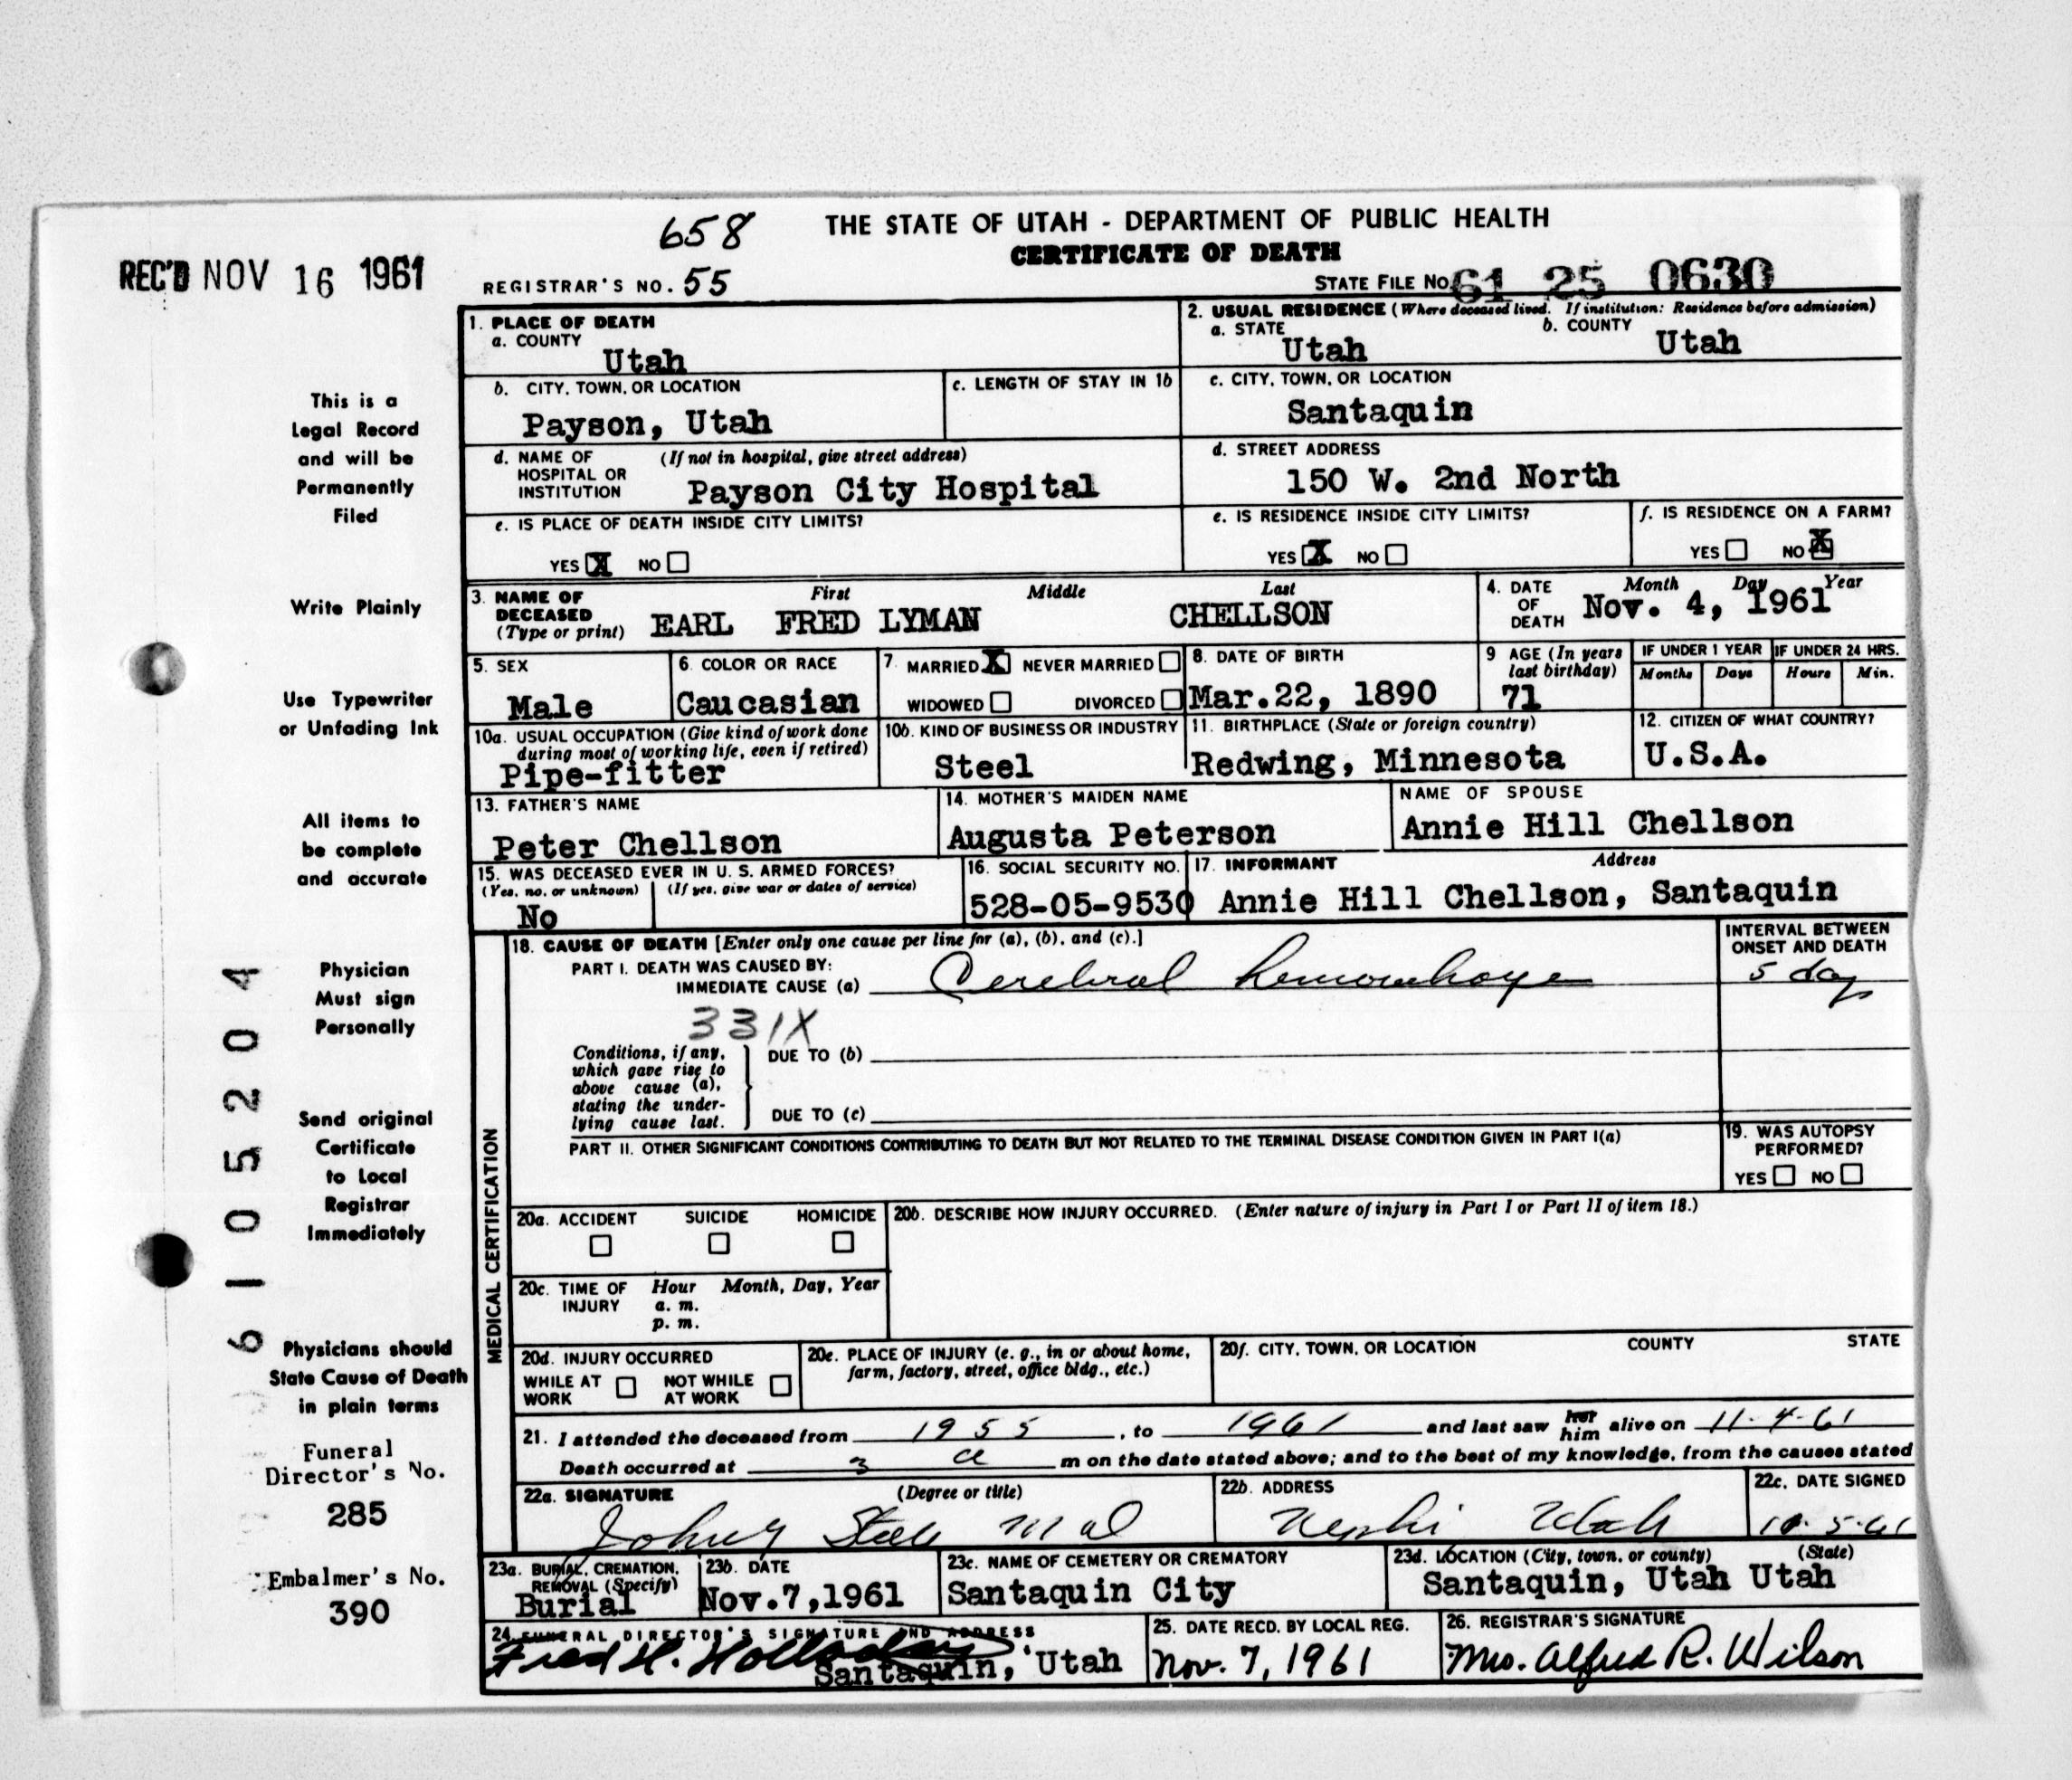 658
THE STATE OF UTAH - DEPARTMENT OF PUBLIC HEALTH
CERTIFICATE OF DEATH
REC'D NOV 16 1961
REGISTRAR'S NO. 55
STATE FILE NO. 61 25 0630
1. PLACE OF DEATH
a. COUNTY
Utah
2. USUAL RESIDENCE (Where deceased lived. If institution: Residence before admission)
a. STATE
Utah
b. COUNTY
Utah
b. CITY, TOWN, OR LOCATION
Payson, Utah
c. LENGTH OF STAY IN 1b
c. CITY, TOWN, OR LOCATION
Santaquin
d. NAME OF HOSPITAL OR INSTITUTION
(If not in hospital, give street address)
Payson City Hospital
d. STREET ADDRESS
150 W. 2nd North
e. IS PLACE OF DEATH INSIDE CITY LIMITS?
YES X NO
e. IS RESIDENCE INSIDE CITY LIMITS?
YES X NO
f. IS RESIDENCE ON A FARM?
YES NO X
3. NAME OF DECEASED (Type or print)
First Middle Last
EARL FRED LYMAN CHELLSON
4. DATE OF DEATH
Month Day Year
Nov. 4, 1961
5. SEX
Male
6. COLOR OR RACE
Caucasian
7. MARRIED X NEVER MARRIED
WIDOWED DIVORCED
8. DATE OF BIRTH
Mar.22, 1890
9 AGE (In years last birthday)
71
IF UNDER 1 YEAR
Months Days
IF UNDER 24 HRS.
Hours Min.
10a. USUAL OCCUPATION (Give kind of work done during most of working life, even if retired)
Pipe-fitter
10b. KIND OF BUSINESS OR INDUSTRY
Steel
11. BIRTHPLACE (State or foreign country)
Redwing, Minnesota
12. CITIZEN OF WHAT COUNTRY?
U.S.A.
13. FATHER'S NAME
Peter Chellson
14. MOTHER'S MAIDEN NAME
Augusta Peterson
NAME OF SPOUSE
Annie Hill Chellson
15. WAS DECEASED EVER IN U. S. ARMED FORCES?
(Yes, no, or unknown) (If yes, give war or dates of service)
No
16. SOCIAL SECURITY NO.
528-05-9530
17. INFORMANT Address
Annie Hill Chellson, Santaquin
MEDICAL CERTIFICATION
18. CAUSE OF DEATH [Enter only one cause per line for (a), (b), and (c).]
PART I. DEATH WAS CAUSED BY:
IMMEDIATE CAUSE (a) Cerebral hemorrhage
INTERVAL BETWEEN ONSET AND DEATH
5 day
331X
Conditions, if any, which gave rise to above cause (a), stating the underlying cause last.
DUE TO (b)
DUE TO (c)
PART II. OTHER SIGNIFICANT CONDITIONS CONTRIBUTING TO DEATH BUT NOT RELATED TO THE TERMINAL DISEASE CONDITION GIVEN IN PART I(a)
19. WAS AUTOPSY PERFORMED?
YES NO
20a. ACCIDENT SUICIDE HOMICIDE
20b. DESCRIBE HOW INJURY OCCURRED. (Enter nature of injury in Part I or Part II of item 18.)
20c. TIME OF INJURY
Hour Month, Day, Year
a. m.
p. m.
20d. INJURY OCCURRED
WHILE AT WORK NOT WHILE AT WORK
20e. PLACE OF INJURY (e. g., in or about home, farm, factory, street, office bldg., etc.)
20f. CITY, TOWN, OR LOCATION COUNTY STATE
21. I attended the deceased from 1955, to 1961 and last saw her him alive on 11-4-61
Death occurred at 3 a m on the date stated above; and to the best of my knowledge, from the causes stated
22a. SIGNATURE (Degree or title)
Steele M d
22b. ADDRESS
Nephi Utah
22c. DATE SIGNED
5-61
23a. BURIAL, CREMATION, REMOVAL (Specify)
Burial
23b. DATE
Nov.7,1961
23c. NAME OF CEMETERY OR CREMATORY
Santaquin City
23d. LOCATION (City, town, or county) (State)
Santaquin, Utah Utah
24. FUNERAL DIRECTOR'S SIGNATURE AND ADDRESS
Fred H. Holladay
Santaquin, Utah
25. DATE RECD. BY LOCAL REG.
Nov. 7, 1961
26. REGISTRAR'S SIGNATURE
Mrs. Alfred R. Wilson
This is a
Legal Record
and will be
Permanently
Filed
Write Plainly
Use Typewriter
or Unfading Ink
All items to
be complete
and accurate
Physician
Must sign
Personally
Send original
Certificate
to Local
Registrar
Immediately
Physicians should
State Cause of Death
in plain terms
Funeral
Director's No.
285
Embalmer's No.
390
6105204